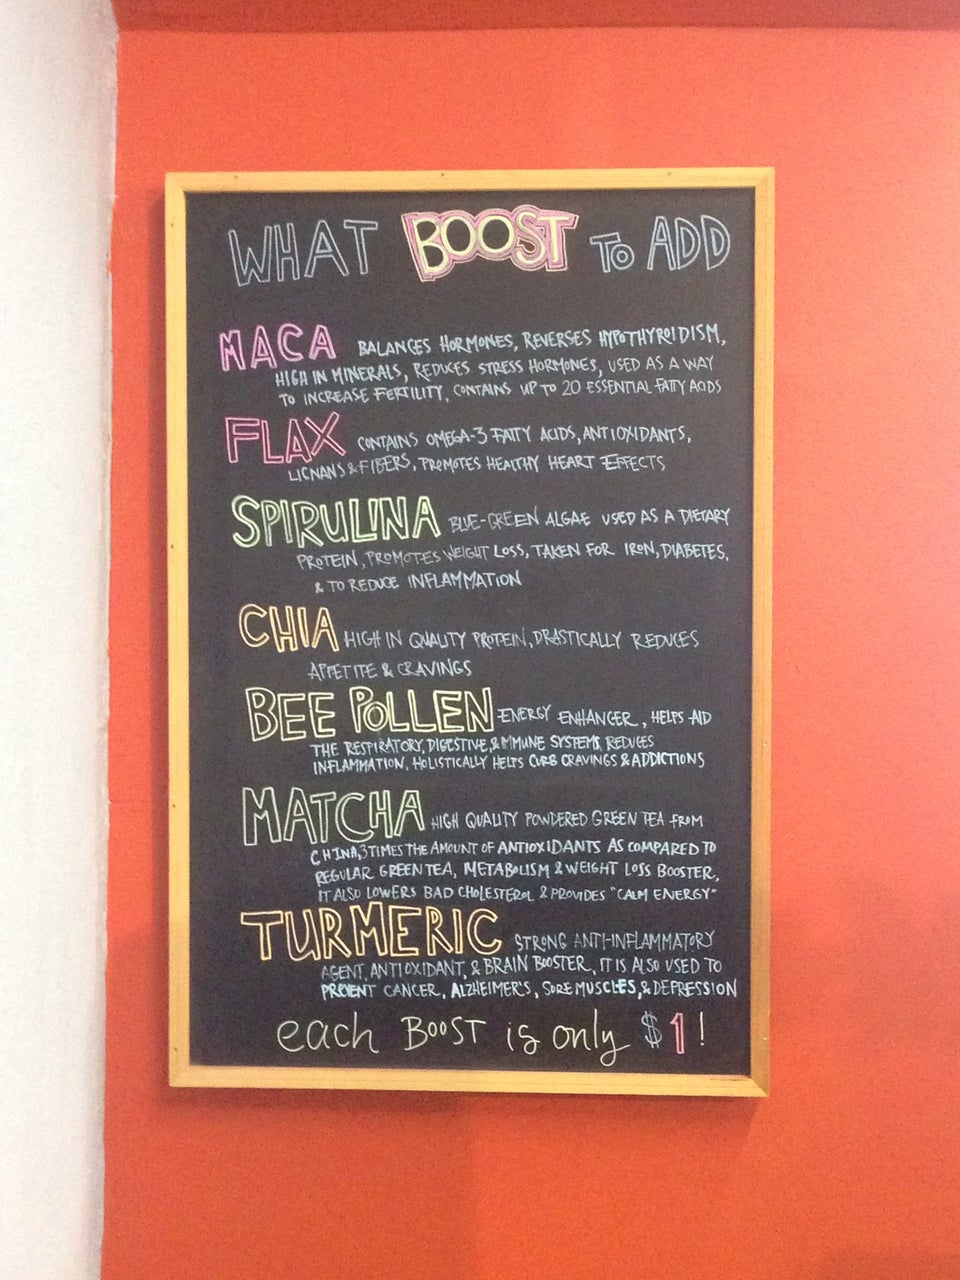 WHAT BOOST TO ADD
MACA BALANCES HORMONES, REVERSES HYPOTHYROIDISM,
HIGH IN MINERALS, REDUCES STRESS HORMONES, USED AS A WAY
TO INCREASE FERTILITY, CONTAINS UP TO 20 ESSENTIAL FATTY ACIDS
FLAX CONTAINS OMEGA-3 FATTY ACIDS, ANTIOXIDANTS,
LIGNANS & FIBERS, PROMOTES HEALTHY HEART EFFECTS
SPIRULINA BLUE-GREEN ALGAE USED AS A DIETARY
PROTEIN, PROMOTES WEIGHT LOSS, TAKEN FOR IRON, DIABETES,
& TO REDUCE INFLAMMATION
CHIA HIGH IN QUALITY PROTEIN, DRASTICALLY REDUCES
APPETITE & CRAVINGS
BEE POLLEN ENERGY ENHANCER, HELPS AID
THE RESPIRATORY, DIGESTIVE, & IMMUNE SYSTEMS, REDUCES
INFLAMMATION, HOLISTICALLY HELPS CURB CRAVINGS & ADDICTIONS
MATCHA HIGH QUALITY POWDERED GREEN TEA FROM
CHINA, 3 TIMES THE AMOUNT OF ANTIOXIDANTS AS COMPARED TO
REGULAR GREEN TEA, METABOLISM & WEIGHT LOSS BOOSTER,
IT ALSO LOWERS BAD CHOLESTEROL & PROVIDES "CALM ENERGY"
TURMERIC STRONG ANTI-INFLAMMATORY
AGENT, ANTIOXIDANT, & BRAIN BOOSTER, IT IS ALSO USED TO
PREVENT CANCER, ALZHEIMER'S, SORE MUSCLES, & DEPRESSION
each BOOST is only $1!